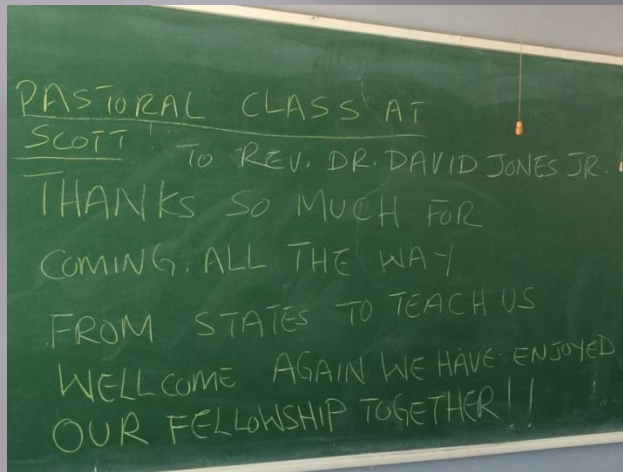 PASTORAL CLASS AT
SCOTT! TO REV. DR. DAVID JONES JR.
THANKS SO MUCH FOR
COMING. ALL THE WAY
FROM STATES TO TEACH US
WELLCOME AGAIN WE HAVE ENJOYED
OUR FELLOWSHIP TOGETHER!!